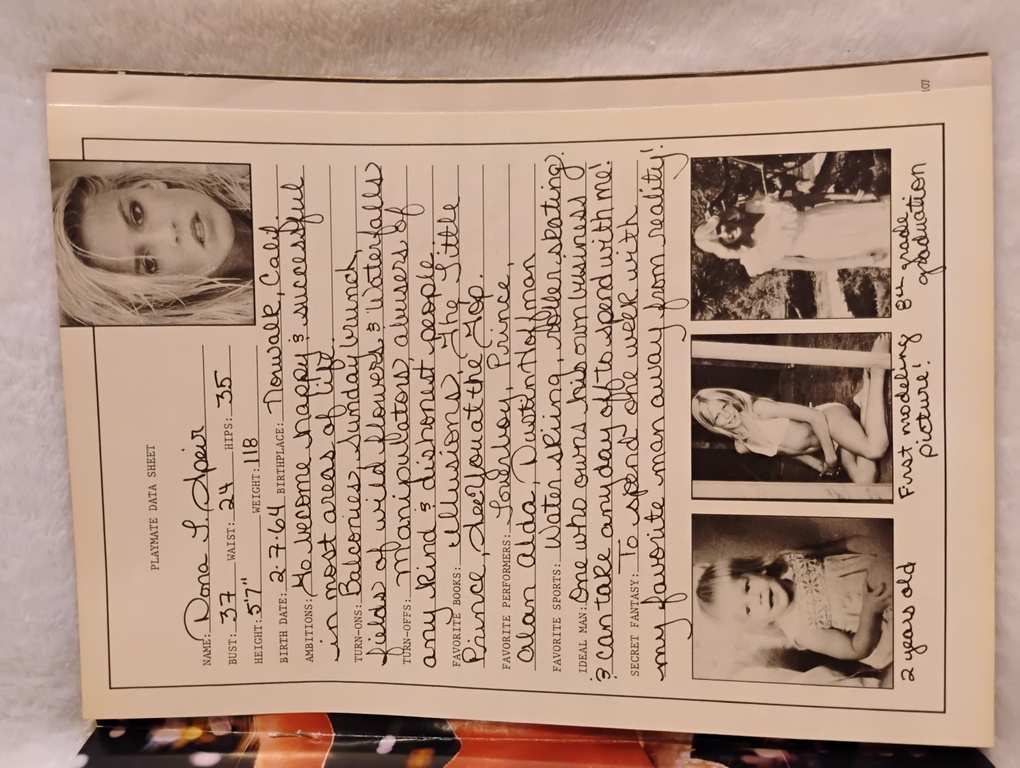 PLAYMATE DATA SHEET
NAME: Dona L. Speir
BUST: 37 WAIST: 24 HIPS: 35
HEIGHT: 5'7" WEIGHT: 118
BIRTH DATE: 2-7-64 BIRTHPLACE: Norwalk, Calif.
AMBITIONS: To become happy & successful
in most areas of life.
TURN-ONS: Balconies, Sunday brunch,
fields of wild flowers & waterfalls
TURN-OFFS: Manipulators, abusers of
any kind & dishonest people.
FAVORITE BOOKS: Illusions, The Little
Prince, See You at the Top.
FAVORITE PERFORMERS: Loverboy, Prince,
Alan Alda, Dustin Hoffman
FAVORITE SPORTS: Water skiing, Roller skating.
IDEAL MAN: One who owns his own business
& can take any day off to spend with me!
SECRET FANTASY: To spend one week with
my favorite man away from reality!
2 years old
First modeling
picture!
8th grade
graduation
107